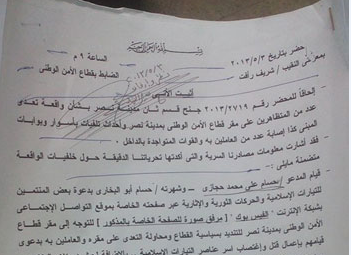 بسم الله الرحمن الرحيم
حضر بتاريخ ٢٠١٣/٥/٣ الساعة ٩ م
بمعرفتي النقيب / شريف رأفت الضابط بقطاع الأمن الوطنى
أثبت الآتى
إلحاقاً للمحضر رقم ٢٠١٣/٢٧١٩ جنح قسم ثان مدينة نصر بشأن واقعة تعدى
عدد من المتظاهرين على مقر قطاع الأمن الوطنى بمدينة نصر وإحداث تلفيات بأسوار وبوابات
المبنى كذا إصابة عدد من العاملين به والقوات المتواجدة بالداخل .
فقد أشارت معلومات مصادرنا السرية والتى أكدتها تحرياتنا الدقيقة حول خلفيات الواقعة
متضمنة مايلى :
قيام المدعو / حسام على محمد حجازى – وشهرته / حسام أبو البخارى بدعوة بعض المنتمين
للتيارات الإسلامية والحركات الثورية والإثارية عبر صفحته الخاصة بموقع التواصل الإجتماعى
بشبكة الإنترنت " الفيس بوك " [ مرفق صورة للصفحة الخاصة بالمذكور ] للتوجه إلى مقر قطاع
الأمن الوطنى بمدينة نصر للتنديد بسياسية القطاع ومحاولة التعدى على مقره والعاملين به بدعوى
قيامهم بإعمال قتل وإغتصاب اسر عناصر التيارات الإسلامية